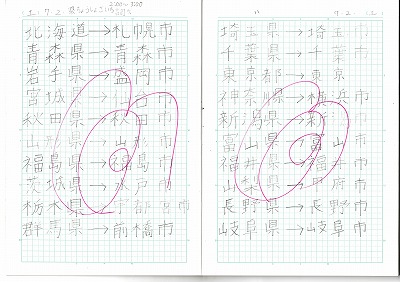 北海道→札幌市
青森県→青森市
岩手県→盛岡市
宮城県→仙台市
秋田県→秋田市
山形県→山形市
福島県→福島市
茨城県→水戸市
栃木県→宇都宮市
群馬県→前橋市
埼玉県→埼玉市
千葉県→千葉市
東京都→東京
神奈川県→横浜市
新潟県→新潟市
富山県→富山市
福井県→福井市
山梨県→甲府市
長野県→長野市
岐阜県→岐阜市